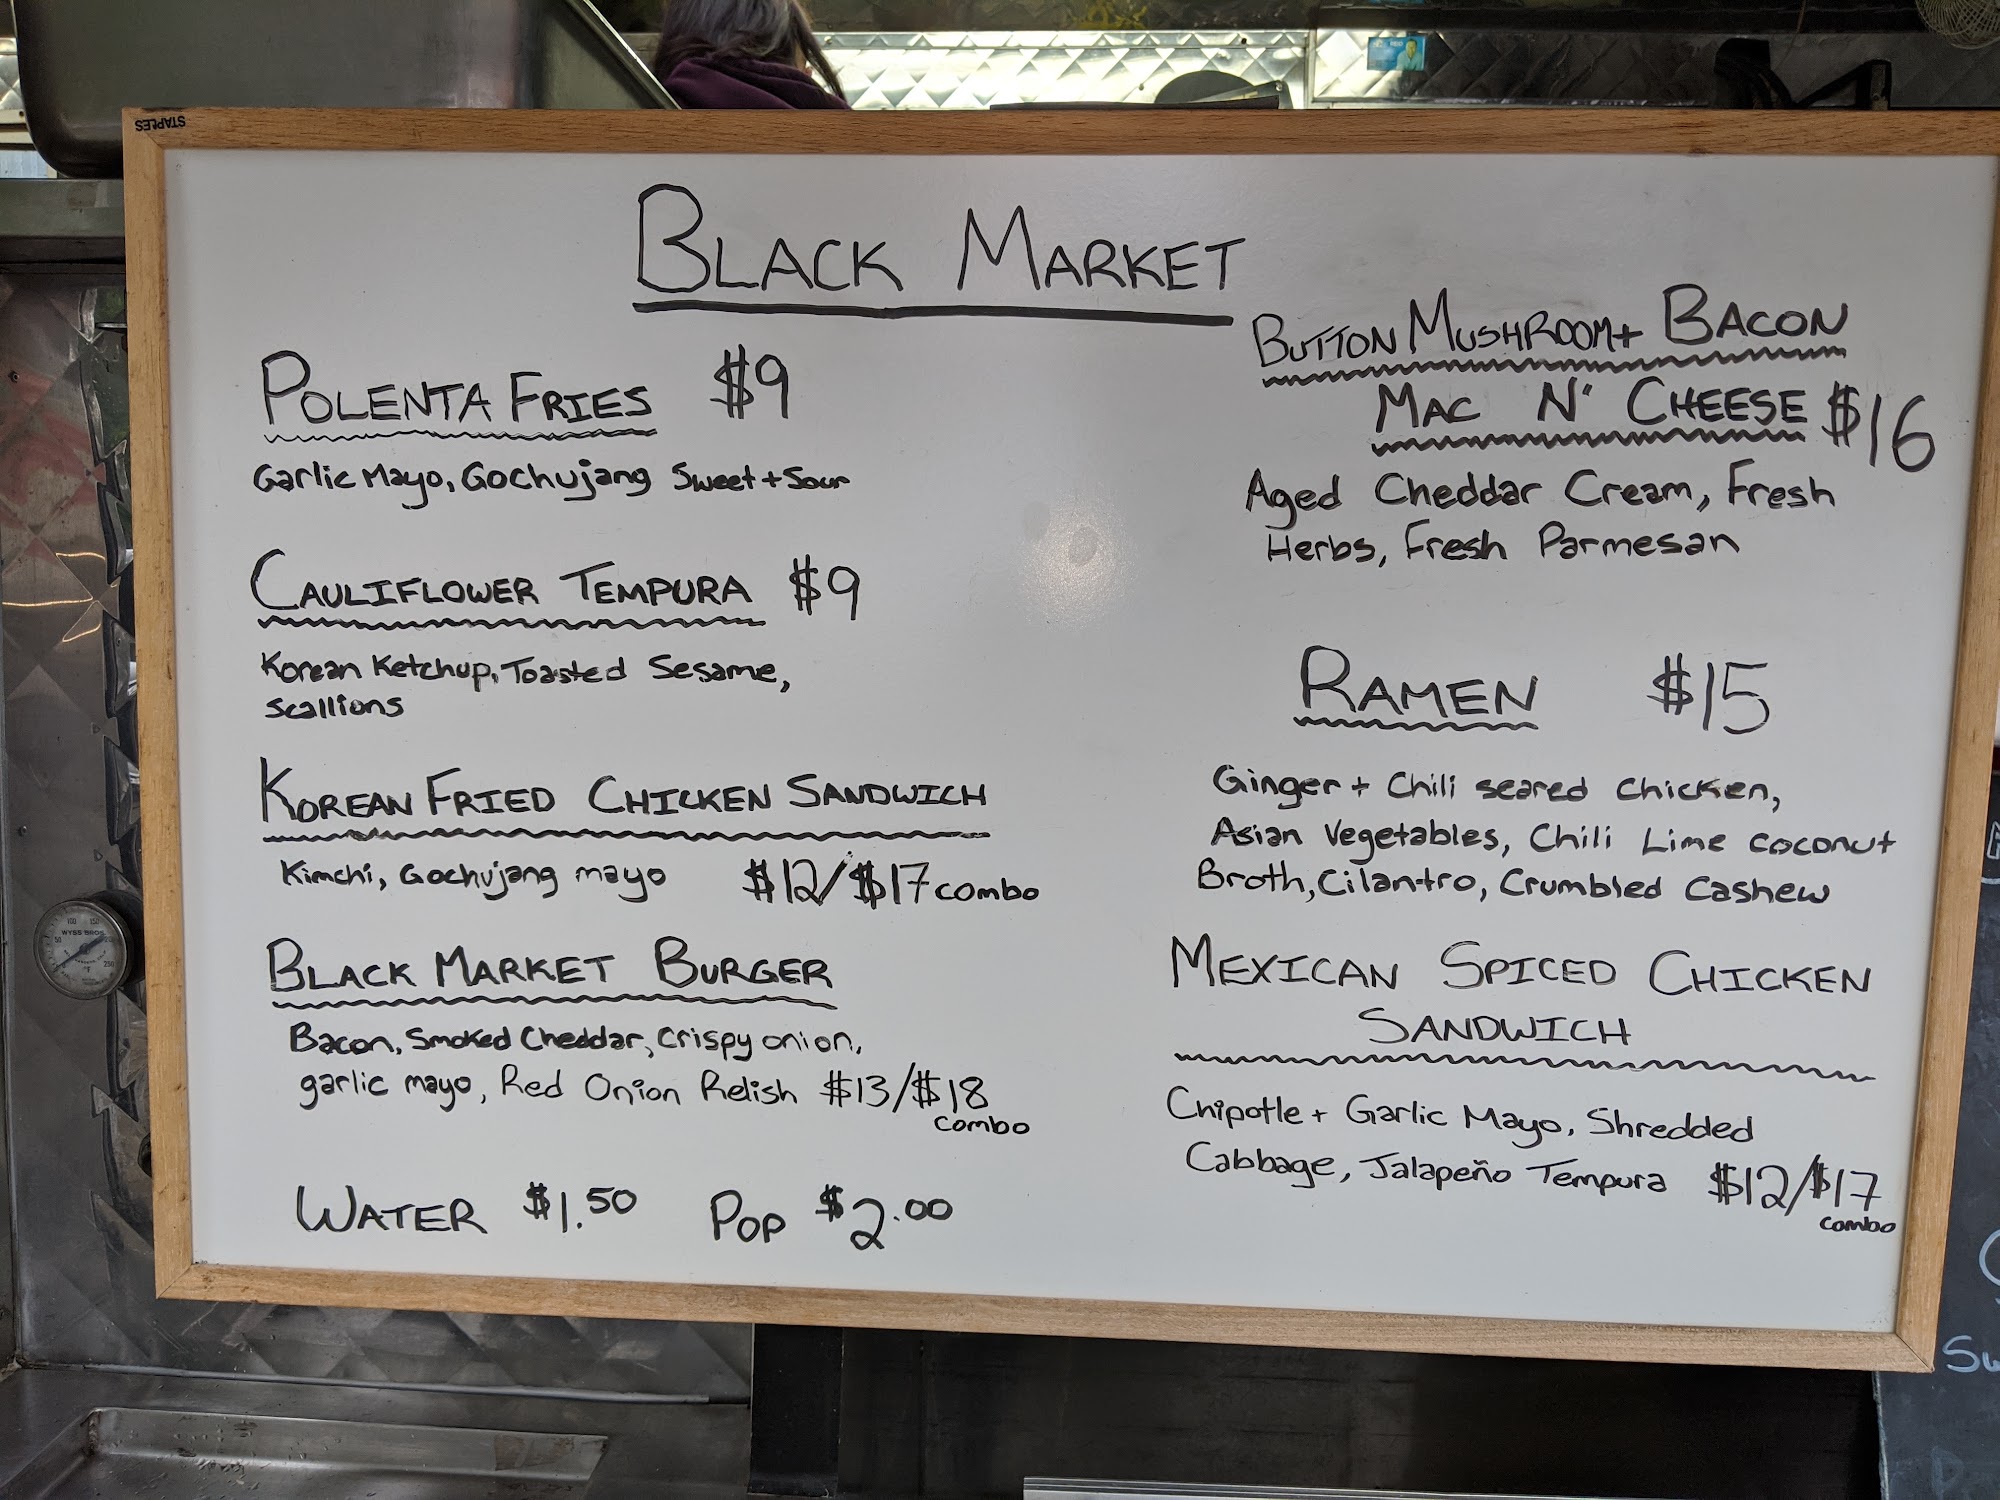 STAPLES
BLACK MARKET
POLENTA FRIES $9
Garlic Mayo, Gochujang Sweet + Sour
CAULIFLOWER TEMPURA $9
Korean Ketchup, Toasted Sesame,
Scallions
KOREAN FRIED CHICKEN SANDWICH
Kimchi, Gochujang mayo $12/$17 combo
BLACK MARKET BURGER
Bacon, Smoked Cheddar, Crispy onion,
garlic mayo, Red Onion Relish $13/$18
combo
WATER $1.50 POP $2.00
BUTTON MUSHROOM + BACON
MAC N' CHEESE $16
Aged Cheddar Cream, Fresh
Herbs, Fresh Parmesan
RAMEN $15
Ginger + Chili seared Chicken,
Asian Vegetables, Chili Lime coconut
Broth, Cilantro, Crumbled Cashew
MEXICAN SPICED CHICKEN
SANDWICH
Chipotle + Garlic Mayo, Shredded
Cabbage, Jalapeño Tempura $12/$17
combo
WYSS BROS